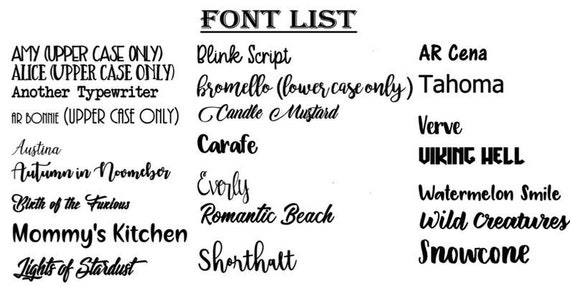 FONT LIST
AMY (UPPER CASE ONLY)
ALICE (UPPER CASE ONLY)
Another Typewriter
AR BONNIE (UPPER CASE ONLY)
Austina
Autumn in Noomeber
Birth of the Furious
Mommy's Kitchen
Lights of Stardust
Blink Script
bromello (lower case only)
Candle Mustard
Carafe
Everly
Romantic Beach
Shorthalt
AR Cena
Tahoma
Verve
VIKING HELL
Watermelon Smile
Wild Creatures
Snowcone